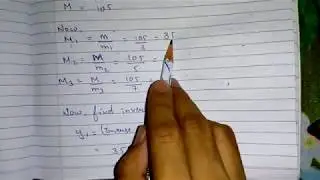 M = 105
Now,
M₁ = M/m₁ = 105/3 = 35
M₂ = M/m₂ = 105/5 =
M₃ = M/m₃ = 105/7 =
Now, find inverse
y₁ = (Inverse
= 35